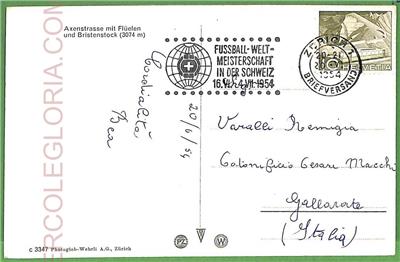 Axenstrasse mit Flüelen
und Bristenstock (3074 m)
FUSSBALL-WELT-
MEISTERSCHAFT
IN DER SCHWEIZ
16.VI.-4.VII.1954
ZÜRICH
1954
BRIEFVERSAND
HELVETIA
Cordialità
Bea
20/6/54
Varalli Remigia
Cotonificio Cesare Macchi
Gallarate
(Italia)
c 3347 Photoglob-Wehrli A.G., Zürich
PZ
W
ERCOLEGLORIA.COM